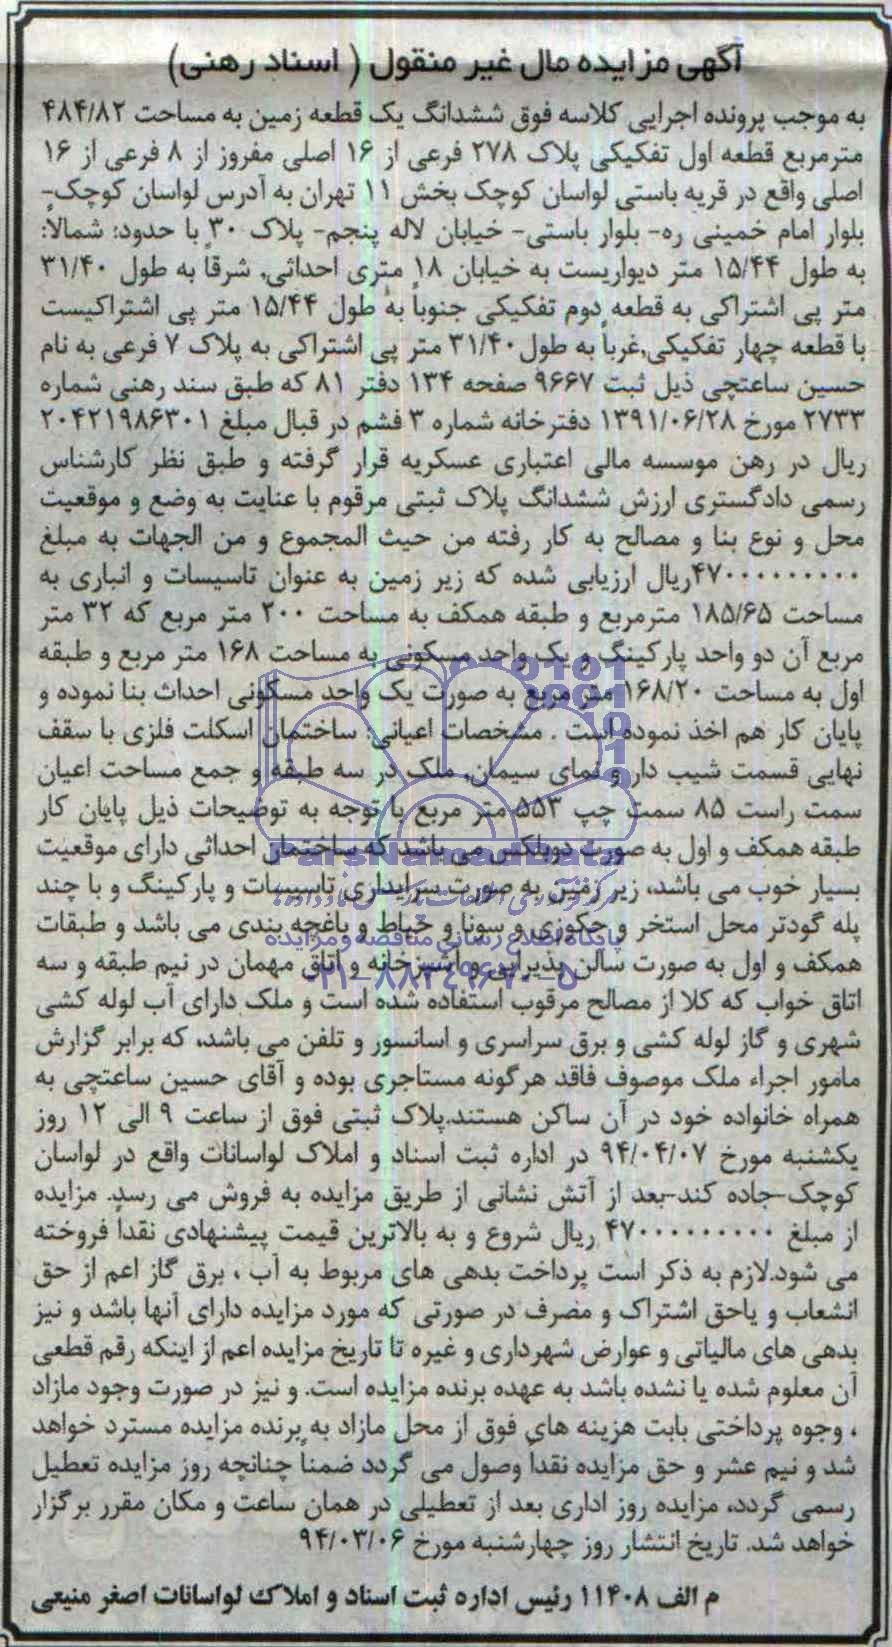 آگهی مزایده مال غیر منقول ( اسناد رهنی)
به موجب پرونده اجرایی کلاسه فوق ششدانگ یک قطعه زمین به مساحت ۴۸۴/۸۲
مترمربع قطعه اول تفکیکی پلاک ۲۷۸ فرعی از ۱۶ اصلی مفروز از ۸ فرعی از ۱۶
اصلی واقع در قریه باستی لواسان کوچک بخش ۱۱ تهران به آدرس لواسان کوچک-
بلوار امام خمینی ره- بلوار باستی- خیابان لاله پنجم- پلاک ۳۰ با حدود: شمالاً:
به طول ۱۵/۴۴ متر دیواریست به خیابان ۱۸ متری احداثی، شرقاً به طول ۳۱/۴۰
متر پی اشتراکی به قطعه دوم تفکیکی جنوباً به طول ۱۵/۴۴ متر پی اشتراکیست
با قطعه چهار تفکیکی،غرباً به طول ۳۱/۴۰ متر پی اشتراکی به پلاک ۷ فرعی به نام
حسین ساعتچی ذیل ثبت ۹۶۶۷ صفحه ۱۳۴ دفتر ۸۱ که طبق سند رهنی شماره
۲۷۳۳ مورخ ۱۳۹۱/۰۶/۲۸ دفترخانه شماره ۳ فشم در قبال مبلغ ۲۰۴۲۱۹۸۶۳۰۱
ریال در رهن موسسه مالی اعتباری عسکریه قرار گرفته و طبق نظر کارشناس
رسمی دادگستری ارزش ششدانگ پلاک ثبتی مرقوم با عنایت به وضع و موقعیت
محل و نوع بنا و مصالح به کار رفته من حیث المجموع و من الجهات به مبلغ
۴۷۰۰۰۰۰۰۰۰۰ریال ارزیابی شده که زیر زمین به عنوان تاسیسات و انباری به
مساحت ۱۸۵/۶۵ مترمربع و طبقه همکف به مساحت ۲۰۰ متر مربع که ۳۲ متر
مربع آن دو واحد پارکینگ و یک واحد مسکونی به مساحت ۱۶۸ متر مربع و طبقه
اول به مساحت ۱۶۸/۲۰ متر مربع به صورت یک واحد مسکونی احداث بنا نموده و
پایان کار هم اخذ نموده است . مشخصات اعیانی: ساختمان اسکلت فلزی با سقف
نهایی قسمت شیب دار و نمای سیمان، ملک در سه طبقه و جمع مساحت اعیان
سمت راست ۸۵ سمت چپ ۵۵۳ متر مربع با توجه به توضیحات ذیل پایان کار
طبقه همکف و اول به صورت دوبلکس می باشد که ساختمان احداثی دارای موقعیت
بسیار خوب می باشد، زیر زمین به صورت سرایداری تاسیسات و پارکینگ و با چند
پله گودتر محل استخر و جکوزی و سونا و حیاط و باغچه بندی می باشد و طبقات
همکف و اول به صورت سالن پذیرایی و آشپزخانه و اتاق مهمان در نیم طبقه و سه
اتاق خواب که کلا از مصالح مرقوب استفاده شده است و ملک دارای آب لوله کشی
شهری و گاز لوله کشی و برق سراسری و اسانسور و تلفن می باشد، که برابر گزارش
مامور اجراء ملک موصوف فاقد هرگونه مستاجری بوده و آقای حسین ساعتچی به
همراه خانواده خود در آن ساکن هستند.پلاک ثبتی فوق از ساعت ۹ الی ۱۲ روز
یکشنبه مورخ ۹۴/۰۴/۰۷ در اداره ثبت اسناد و املاک لواسانات واقع در لواسان
کوچک-جاده کند-بعد از آتش نشانی از طریق مزایده به فروش می رسد. مزایده
از مبلغ ۴۷۰۰۰۰۰۰۰۰۰ ریال شروع و به بالاترین قیمت پیشنهادی نقداً فروخته
می شود.لازم به ذکر است پرداخت بدهی های مربوط به آب ، برق گاز اعم از حق
انشعاب و یاحق اشتراک و مصرف در صورتی که مورد مزایده دارای آنها باشد و نیز
بدهی های مالیاتی و عوارض شهرداری و غیره تا تاریخ مزایده اعم از اینکه رقم قطعی
آن معلوم شده یا نشده باشد به عهده برنده مزایده است. و نیز در صورت وجود مازاد
، وجوه پرداختی بابت هزینه های فوق از محل مازاد به برنده مزایده مسترد خواهد
شد و نیم عشر و حق مزایده نقداً وصول می گردد ضمناً چنانچه روز مزایده تعطیل
رسمی گردد، مزایده روز اداری بعد از تعطیلی در همان ساعت و مکان مقرر برگزار
خواهد شد. تاریخ انتشار روز چهارشنبه مورخ ۹۴/۰۳/۰۶
م الف ۱۱۴۰۸ رئیس اداره ثبت اسناد و املاک لواسانات اصغر منیعی
ParsNamadData
پایگاه اطلاع رسانی مناقصه و مزایده
۰۲۱-۸۸۳۴۹۶۷۰-۵